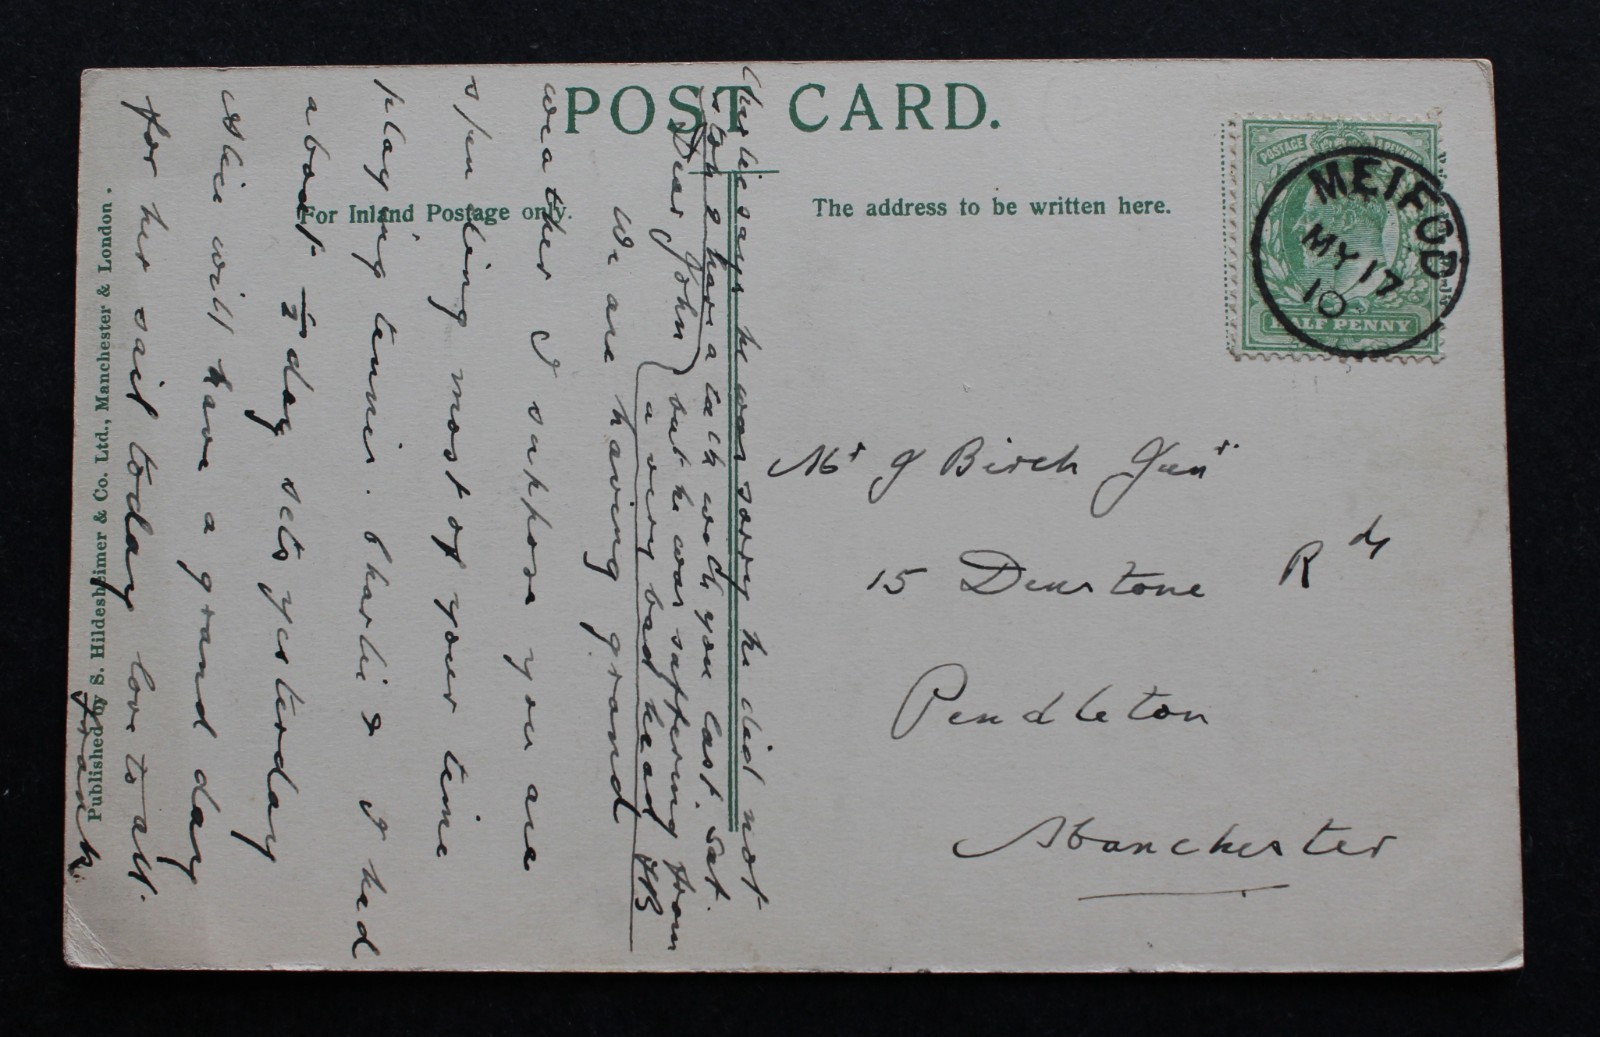 POST CARD.
For Inland Postage only.
The address to be written here.
MEIFOD
MY 17
10
POSTAGE
HALF PENNY
Mr J Birch Junr
15 Denstone Rd
Pendleton
Manchester
Charlie says he was sorry he did not
stop & have a talk with you last Sat.
but he was suffering from
a very bad head FB
Dear John
We are having grand
weather I suppose you are
spending most of your time
playing tennis. Charlie & I had
about 1/2 day sets yesterday
Alice will have a grand day
for her sail today love to all.
Frank
Published by S. Hildesheimer & Co. Ltd., Manchester & London.